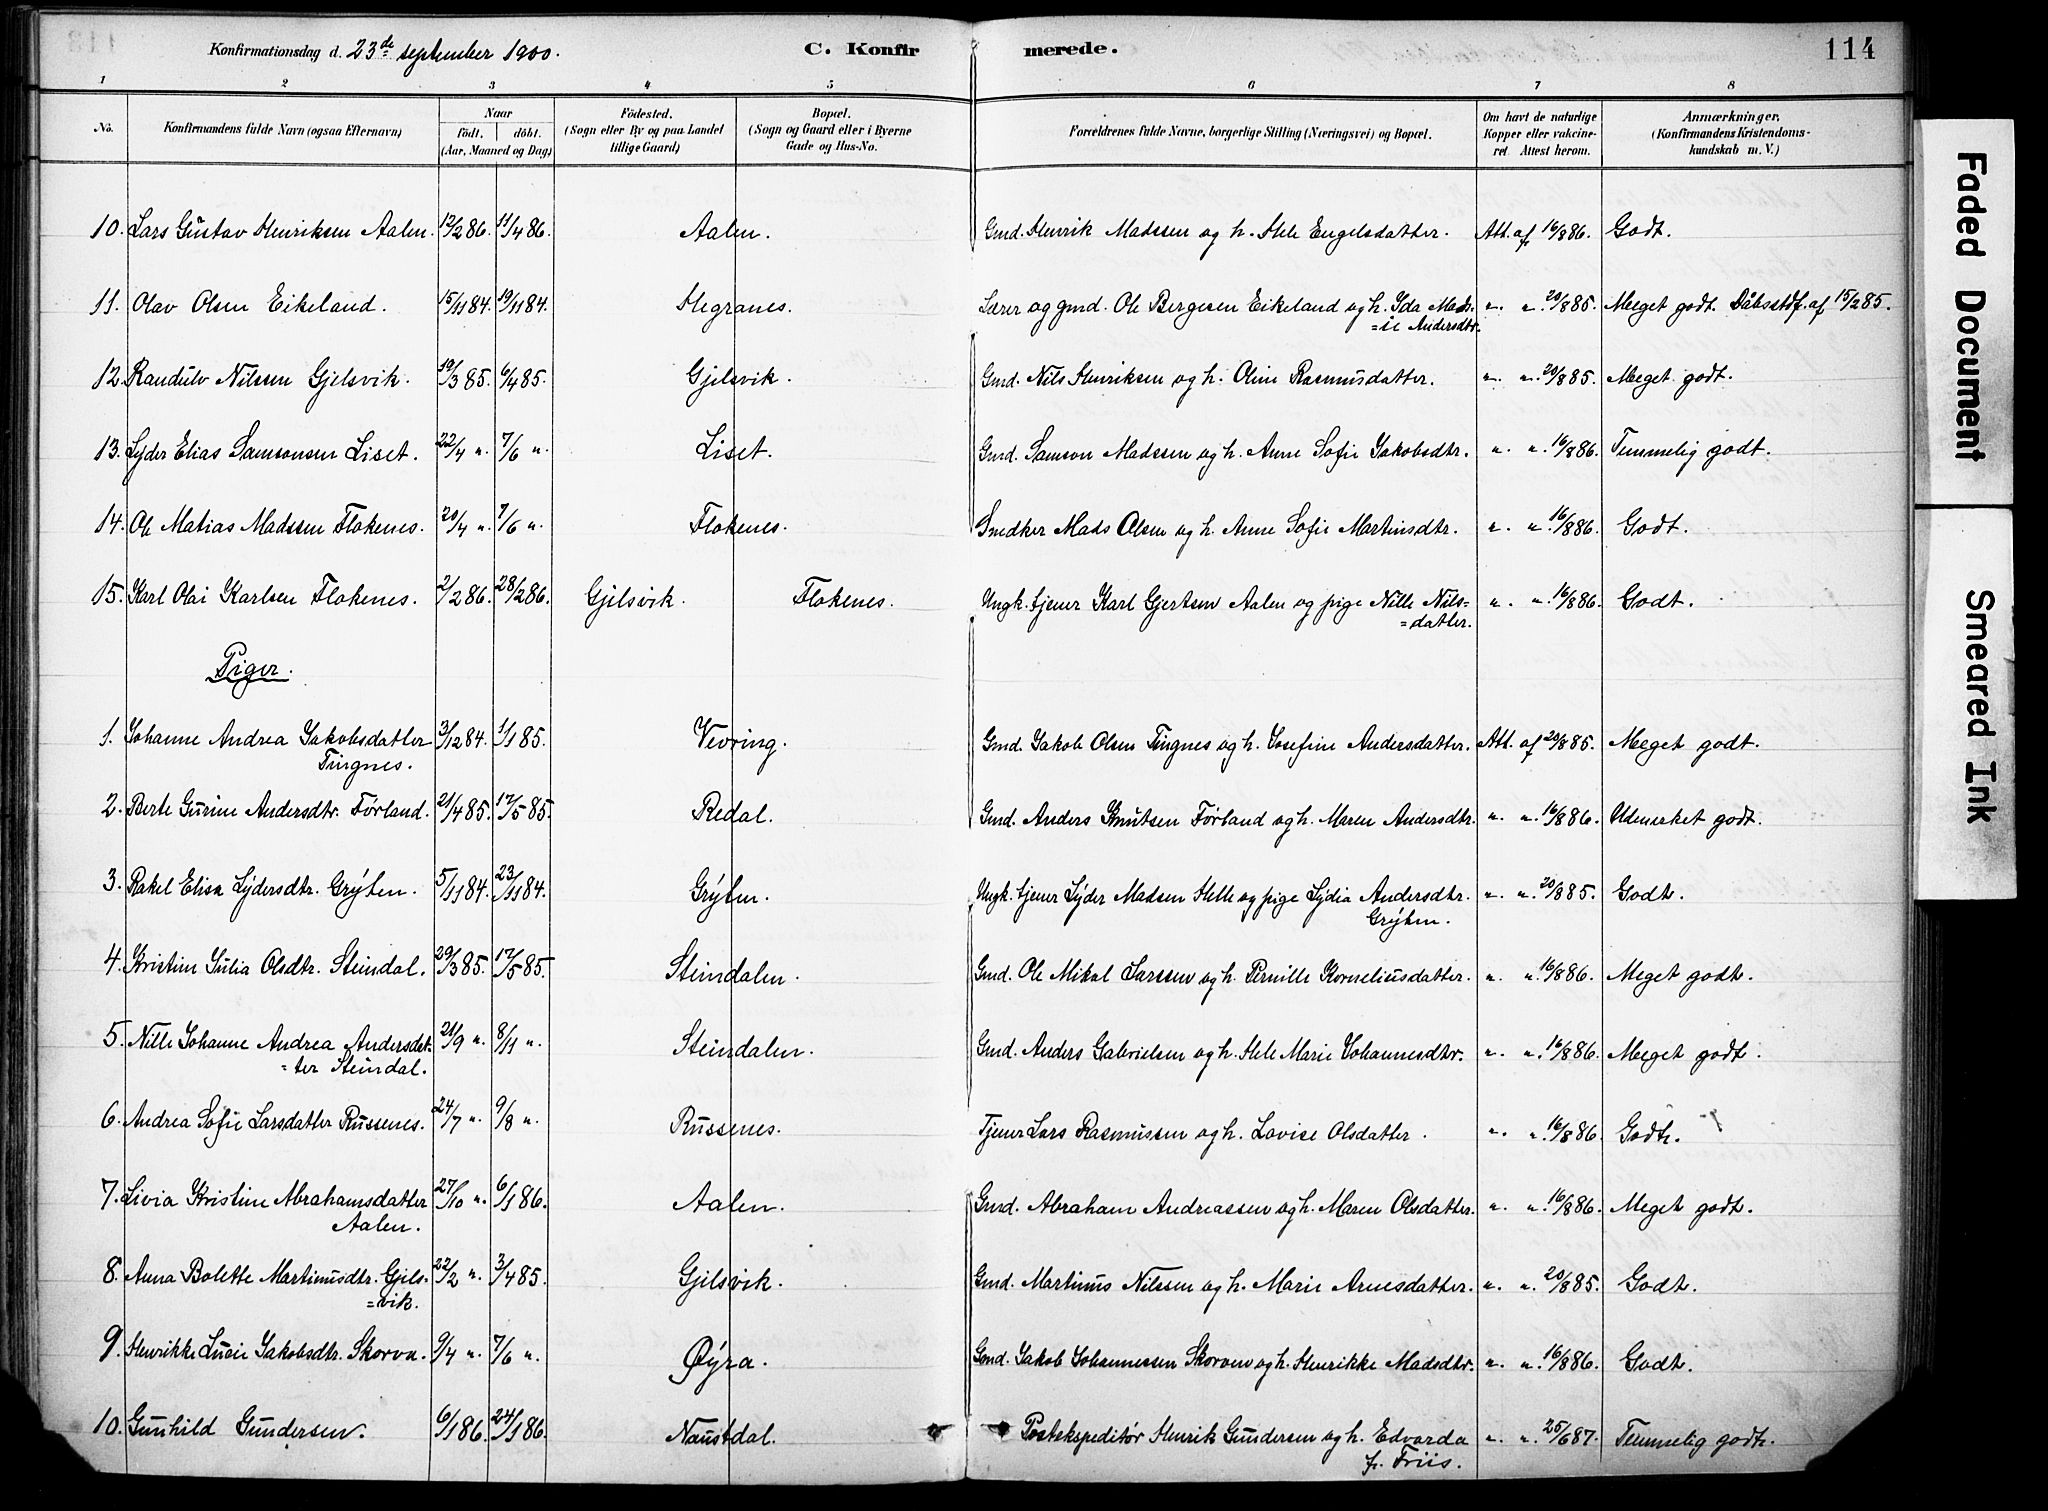 Konfirmationsdag d. 23de september 1900. C. Konfirmerede. 114
1 2 3 4 5 6 7 8
No. Konfirmandens fulde Navn (ogsaa Efternavn) Naar födt. döbt. (Aar, Maaned og Dag) Födested. (Sogn eller By og paa Landet tillige Gaard) Bopæl. (Sogn og Gaard eller i Byerne Gade og Hus-No. Forældrenes fulde Navne, borgerlige Stilling (Næringsvei) og Bopæl. Om havt de naturlige Kopper eller vakcineret. Attest herom. Anmærkninger. (Konfirmandens Kristendomskundskab m. V.)
10. Lars Gustav Henriksen Aalen. 12/2 86. 11/4 86. Aalen. Gmd. Henrik Madssen og h. Hele Engelsdatter. Att. af 16/8 86. Godt.
11. Olav Olsen Eikeland. 15/11 84. 19/11 84. Hegranes. Lærer og gmd. Ole Bergesen Eikeland og h. Ida Mads- " ". 20/8 85. Meget godt. Dåbsatdf. af 15/2 85.
=ie Andersdtr.
12. Randulv Nilssen Gjelsvik. 19/3 85. 6/4 85. Gjelsvik. Gmd. Nils Henriksen og h. Oline Rasmusdatter. " ". 20/8 85. Meget godt.
13. Lyder Elias Samsonsen Liset. 22/4 ". 7/6 ". Liset. Gmd. Samson Madssen og h. Anne Sofie Jakobsdtr. " ". 16/8 86. Temmelig godt.
14. Ole Matias Madssen Flokenes. 20/4 ". 7/6 ". Flokenes. Snedker Mads Olsen og h. Anne Sofie Martinsdtr. " ". 16/8 86. Godt.
15. Karl Olai Karlsen Flokenes. 2/2 86. 28/2 86. Gjelsvik. Flokenes. Ungk. tjener Karl Gjertsen Aalen og pige Nille Nils= " ". 16/8 86. Godt.
=datter.
Piger.
1. Johanne Andrea Jakobsdatter 3/12 84. 1/1 85. Vevring. Gmd. Jakob Olsen Tingnes og h. Josefine Andersdatter. Att. af 20/8 85. Meget godt.
Tingnes.
2. Berte Gurine Andersdtr. Førland. 21/4 85. 17/5 85. Redal. Gmd. Anders Knutsen Førland og h. Maren Andersdtr. " ". 16/8 86. Udmerket godt.
3. Rakel Elisa Lydersdtr. Grýten. 5/11 84. 23/11 84. Grýten. Ungk. tjener Lyder Madsen Helle og pige Lydia Andersdtr. " ". 20/8 85. Godt.
Grýten.
4. Kristine Julia Olsdtr. Steindal. 29/3 85. 17/5 85. Steindalen. Gmd. Ole Mikal Larssen og h. Pernille Korneliusdatter. " ". 16/8 86. Meget godt.
5. Nille Johanne Andrea Andersdat= 21/9 ". 8/11 ". Steindalen. Gmd. Anders Gabrielsen og h. Hele Marie Johannesdtr. " ". 16/8 86. Meget godt.
=ter Steindal.
6. Andrea Sofie Larsdatter Russenes. 24/7 ". 9/8 ". Russenes. Tjener Lars Rasmussen og h. Lovise Olsdatter. " ". 16/8 86. Godt.
7. Livia Kristine Abrahamsdatter 27/10 ". 6/1 86. Aalen. Gmd. Abraham Andreassen og h. Maren Olsdatter. " ". 16/8 86. Meget godt.
Aalen.
8. Anna Bolette Martinusdtr. Gjels= 22/2 ". 3/4 85. Gjelsvik. Gmd. Martinus Nilssen og h. Marie Arnesdatter. " ". 20/8 85. Godt.
=vik.
9. Henrikke Lucie Jakobsdtr. Skorva. 9/4 ". 7/6 ". Øýra. Gmd. Jakob Johannessen Skorven og h. Henrikke Madsdtr. " ". 16/8 86. Godt.
10. Gunhild Gundersen. 6/1 86. 24/1 86. Naustdal. Postekspeditør Henrik Gundersen og h. Edvarda " ". 25/6 87. Temmelig godt.
f. Friis.
Faded Document
Smeared Ink